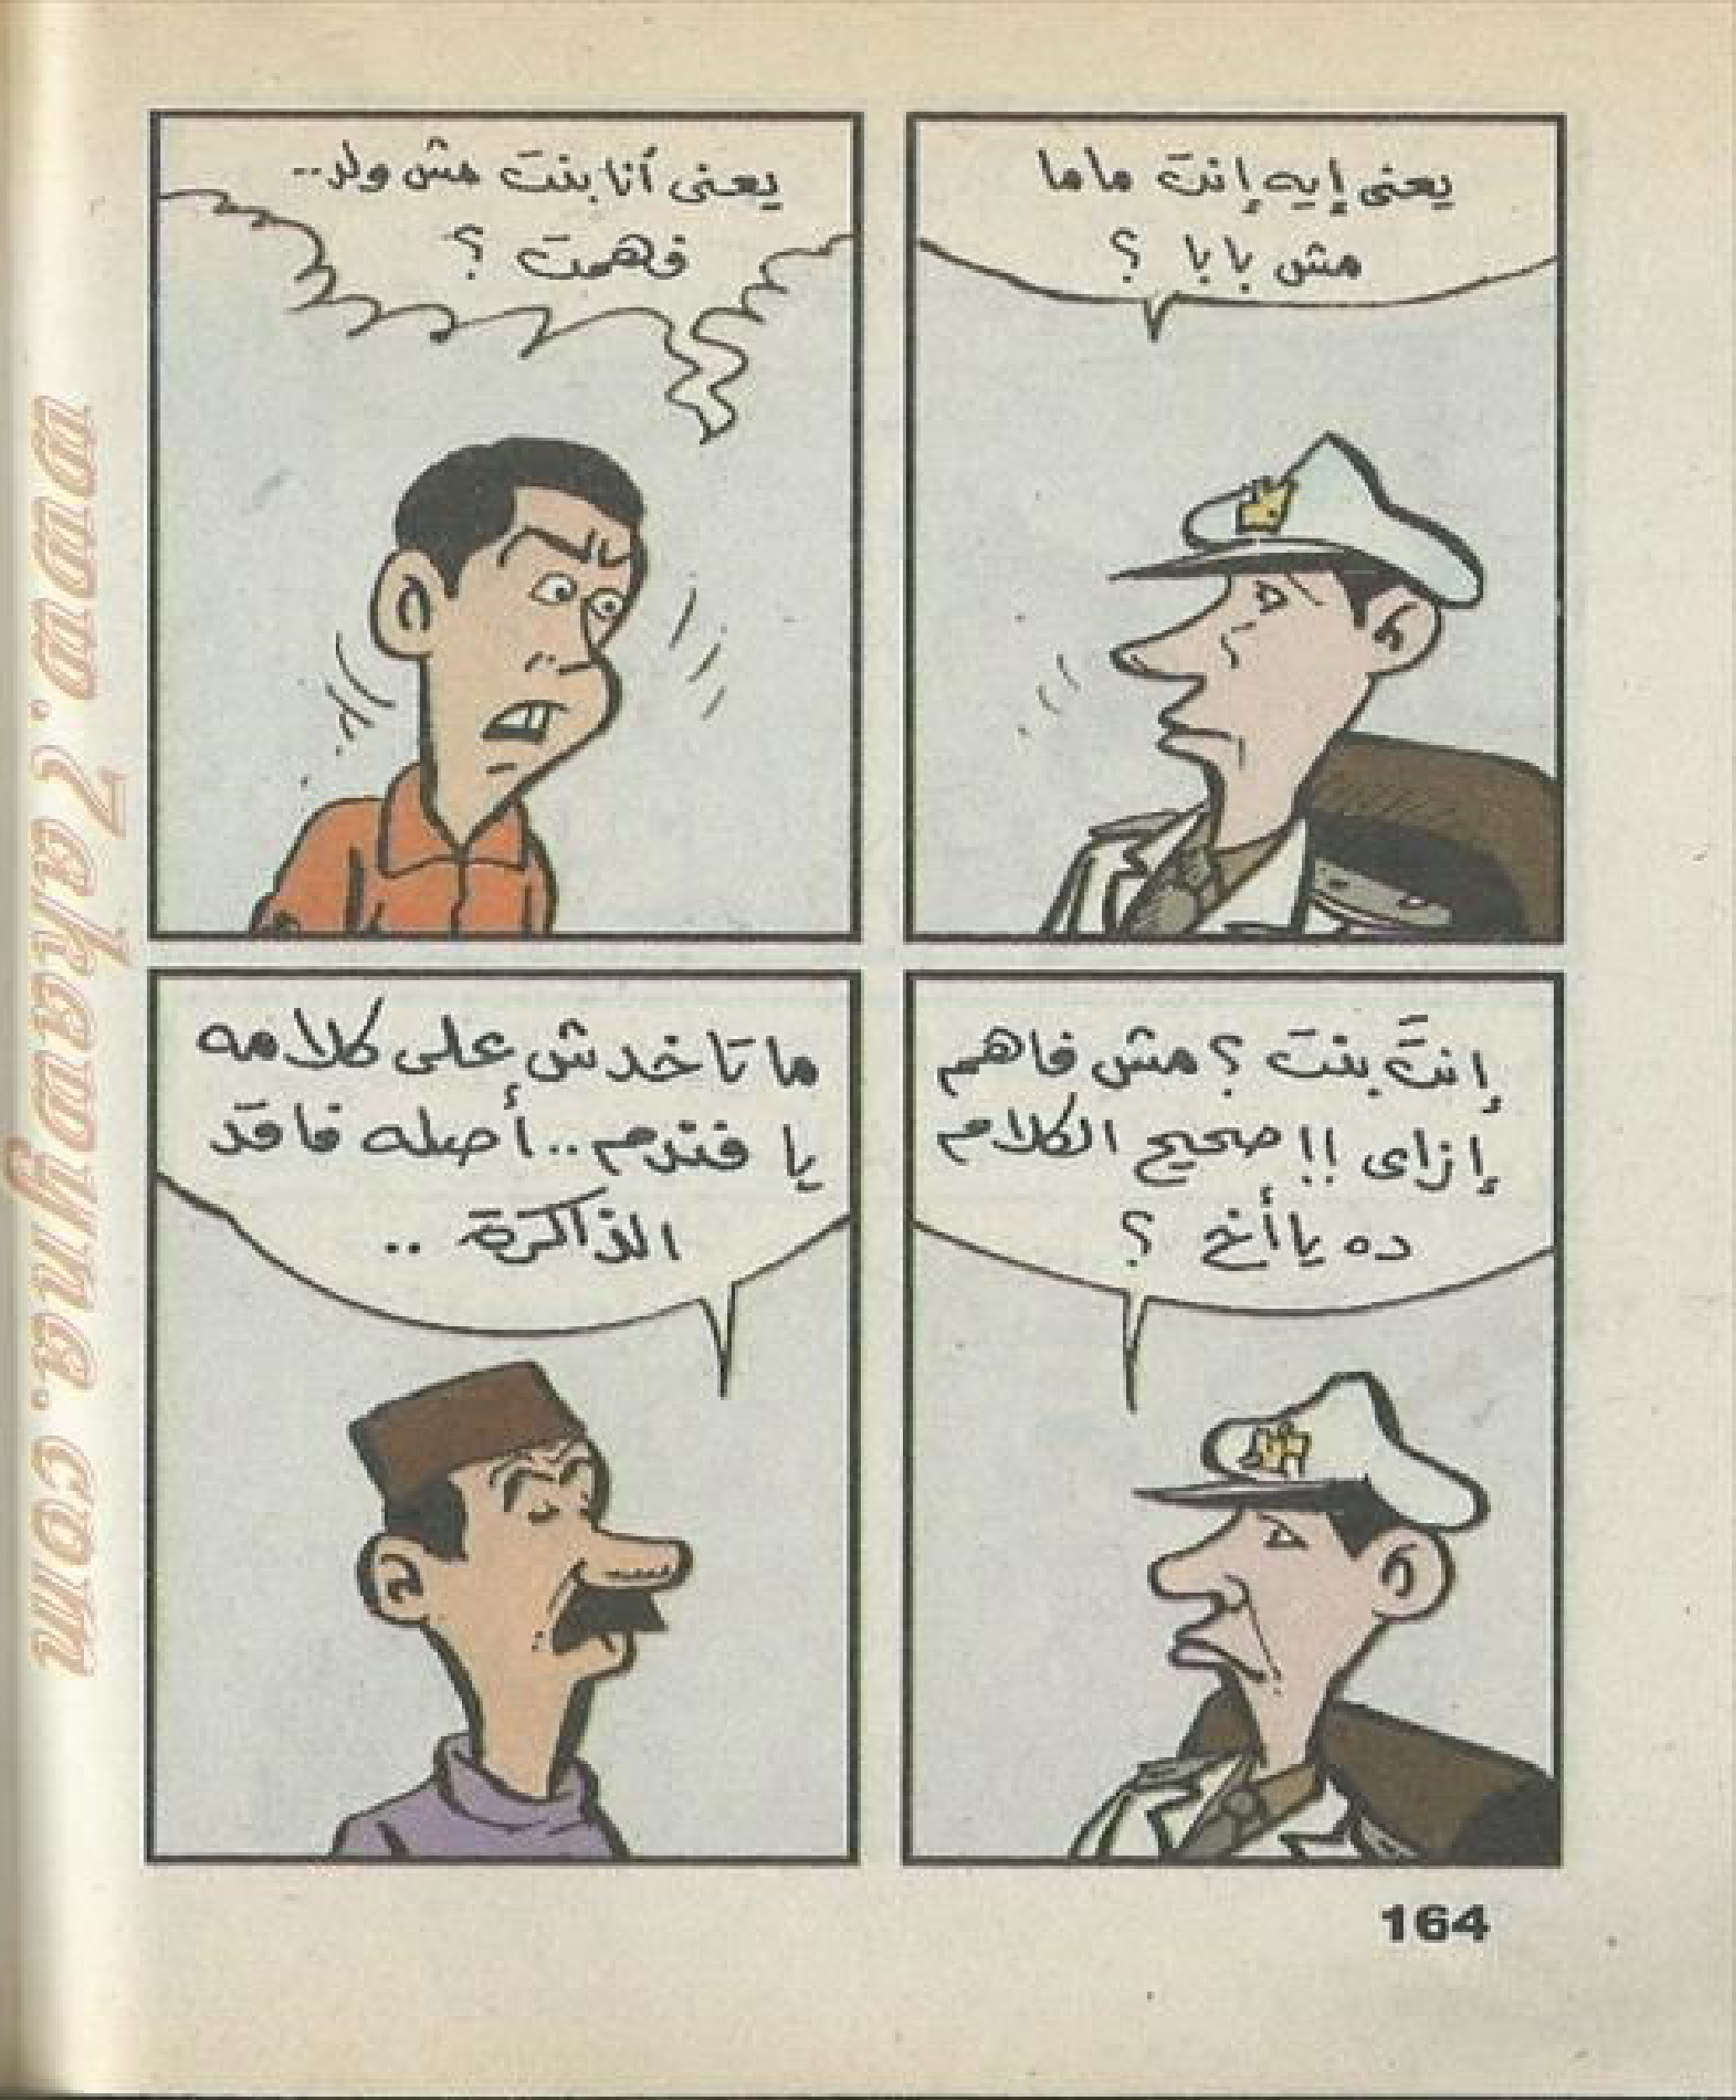 يعنى إيه إنت ماما
مش بابا ؟
يعنى أنا بنت مش ولد..
فهمت ؟
إنت بنت ؟ مش فاهم
إزاى !! صحيح الكلام
ده يا أخ ؟
ما تاخدش على كلامه
يا فندم.. أصله فاقد
الذاكرة ..
164
www.7akawyna.com